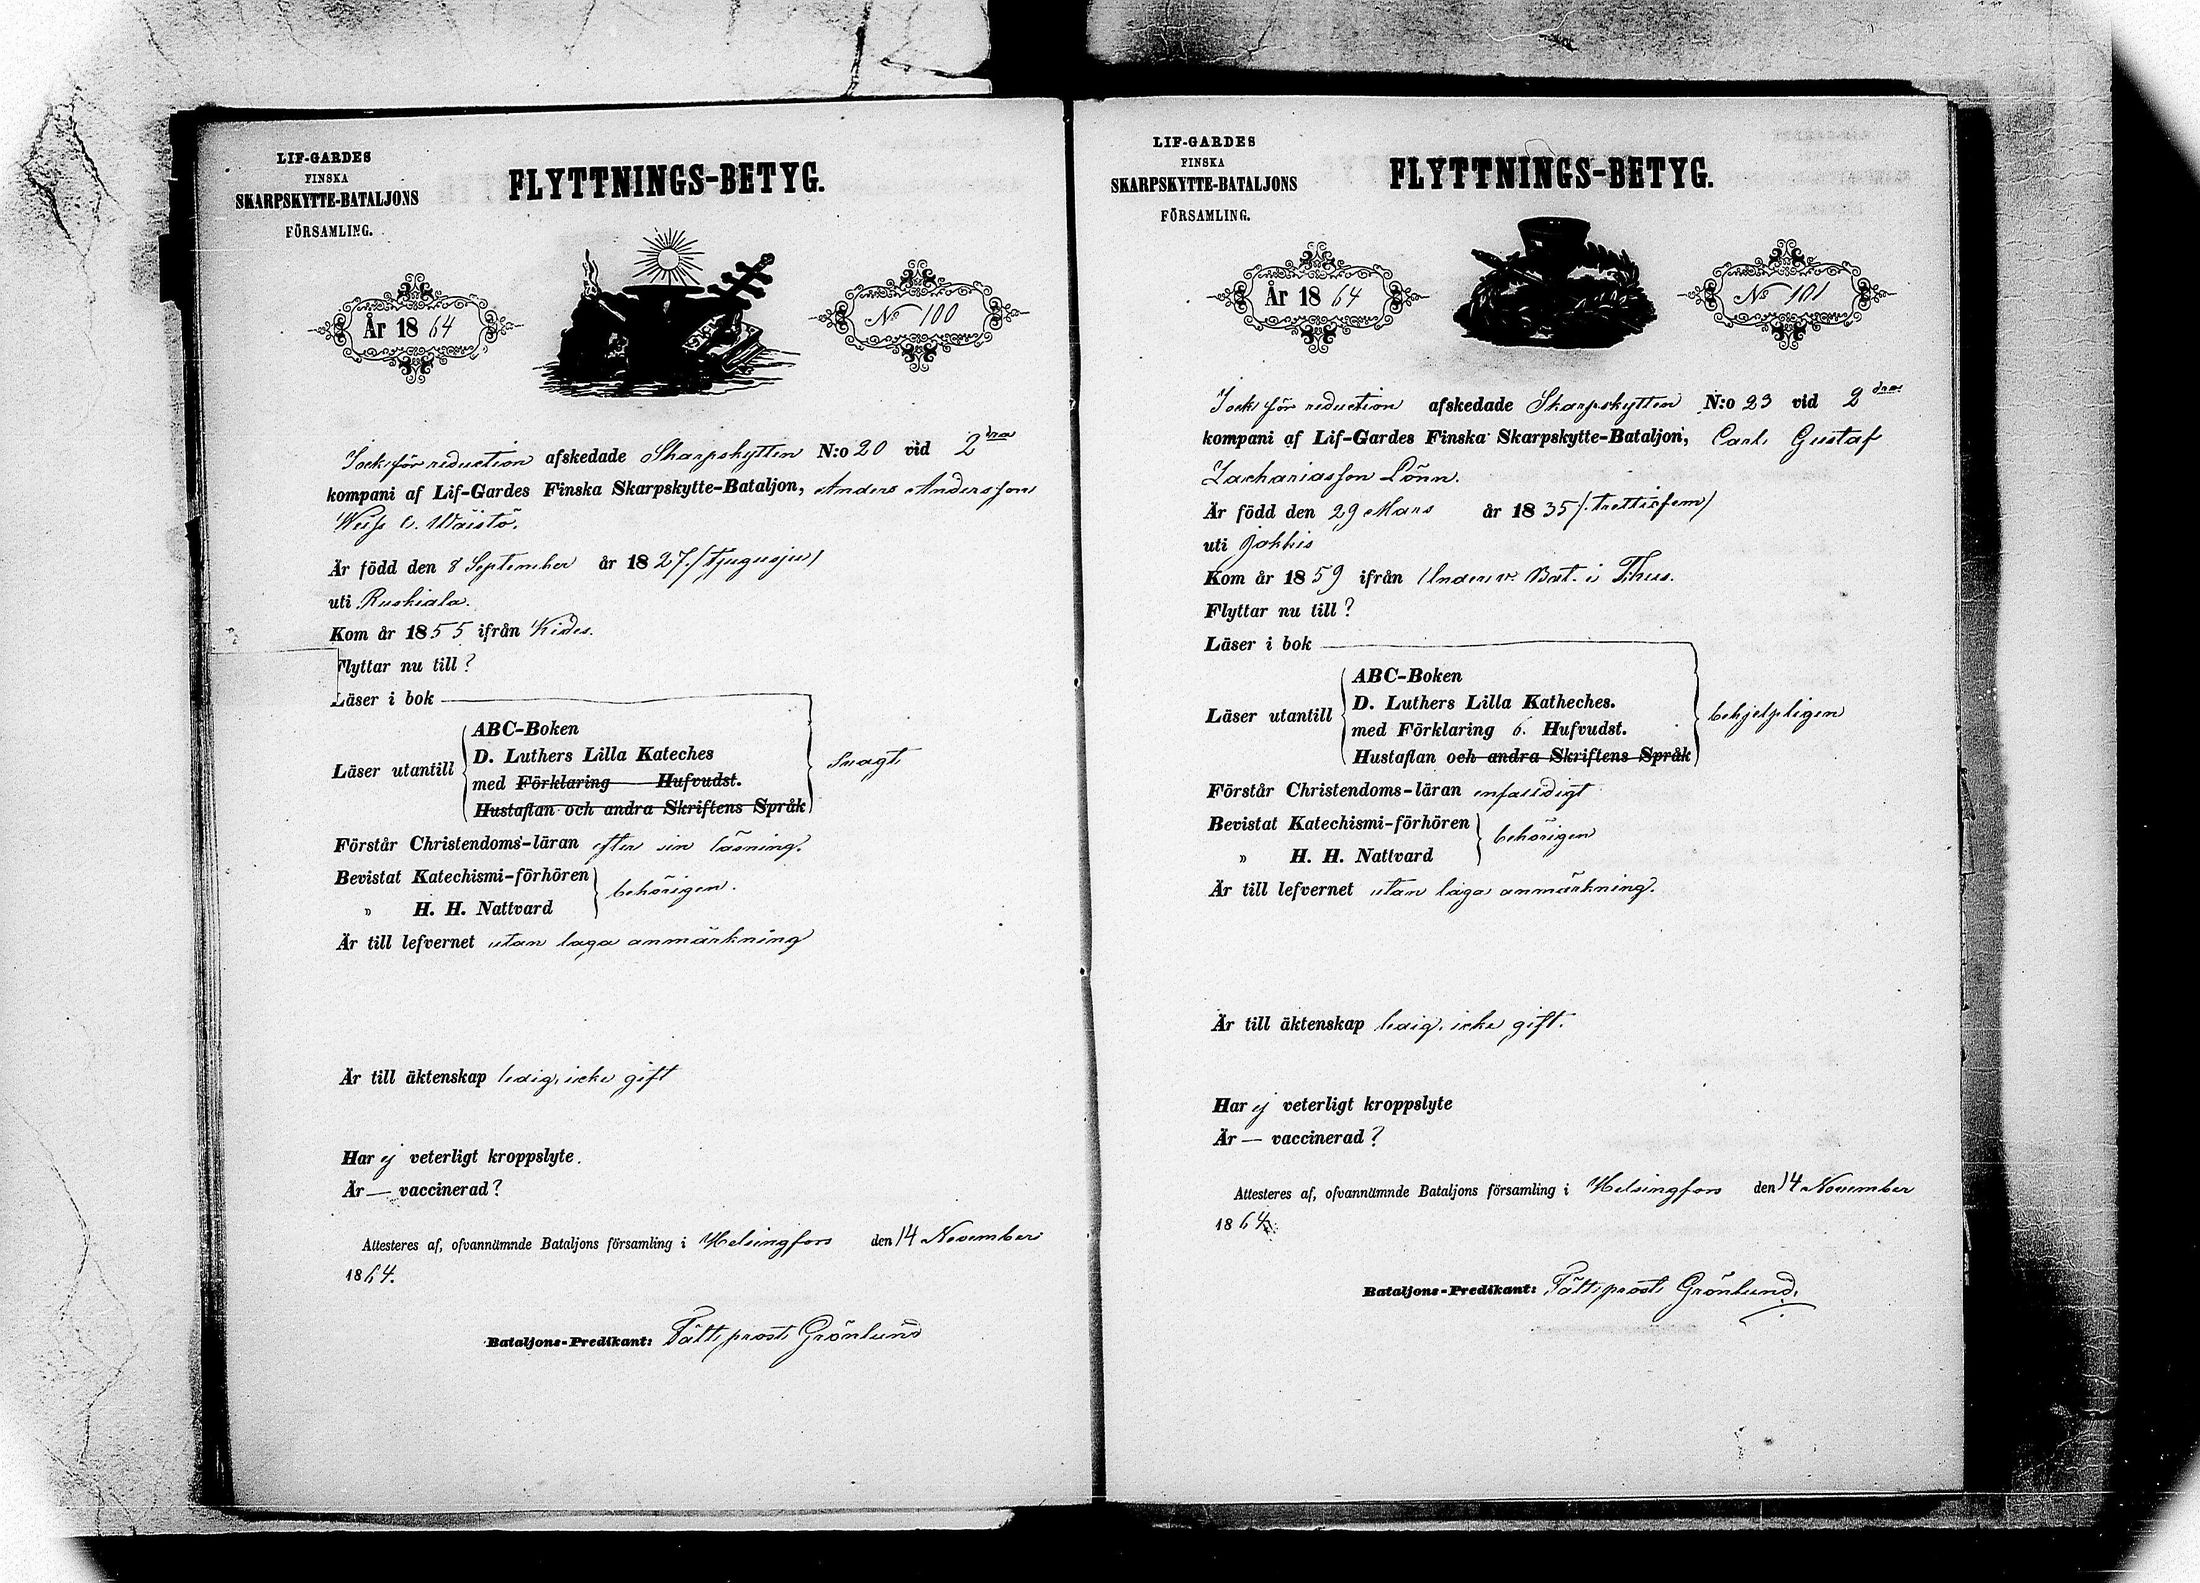 LIF-GARDES
FINSKA
SKARPSKYTTE-BATALJONS
FÖRSAMLING.
FLYTTNINGS-BETYG.
År 1864
No 100
för reduction afskedade Skarpskytten N:o 20 vid 2dra
kompani af Lif-Gardes Finska Skarpskytte-Bataljon, Anders Andersson
Wäistö.
Är född den 8 September år 1827 /tjugusju/
uti Ruskiala.
Kom år 1855 ifrån Kides.
Flyttar nu till ?
Läser i bok
Läser utantill
ABC-Boken
D. Luthers Lilla Kateches
med Förklaring Hufvudst.
Hustaflan och andra Skriftens Språk
Svagt
Förstår Christendoms-läran efter sin läsning.
Bevistat Katechismi-förhören
" H. H. Nattvard
behörigen.
Är till lefvernet utan laga anmärkning
Är till äktenskap ledig, icke gift
Har ej veterligt kroppslyte.
Är — vaccinerad ?
Attesteres af, ofvannämnde Bataljons församling i Helsingfors den 14 November
1864.
Bataljons-Predikant: Fältprost Grönlund
LIF-GARDES
FINSKA
SKARPSKYTTE-BATALJONS
FÖRSAMLING.
FLYTTNINGS-BETYG.
År 1864
No 101
för reduction afskedade Skarpskytten N:o 23 vid 2dra
kompani af Lif-Gardes Finska Skarpskytte-Bataljon, Carl Gustaf
Zachariasson Lönn.
Är född den 29 Mars år 1835 /trettiofem/
uti Jokkis
Kom år 1859 ifrån Underv. Bat. i T:hus.
Flyttar nu till ?
Läser i bok
Läser utantill
ABC-Boken
D. Luthers Lilla Katheches.
med Förklaring 6. Hufvudst.
Hustaflan och andra Skriftens Språk
behjelpligen
Förstår Christendoms-läran enfaldigt
Bevistat Katechismi-förhören
" H. H. Nattvard
behörigen
Är till lefvernet utan laga anmärkning.
Är till äktenskap ledig, icke gift.
Har ej veterligt kroppslyte
Är — vaccinerad ?
Attesteres af, ofvannämnde Bataljons församling i Helsingfors den 14 November
1864.
Bataljons-Predikant: Fältprost Grönlund.